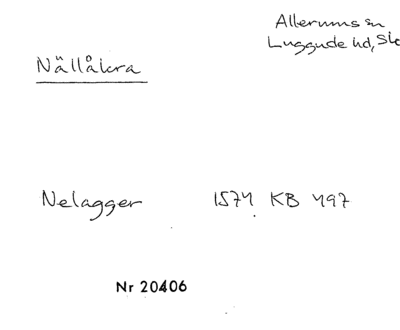 Allerums sn
Luggude hd, Sk
Nällåkra
Nelagger 1574 KB 497
Nr 20406